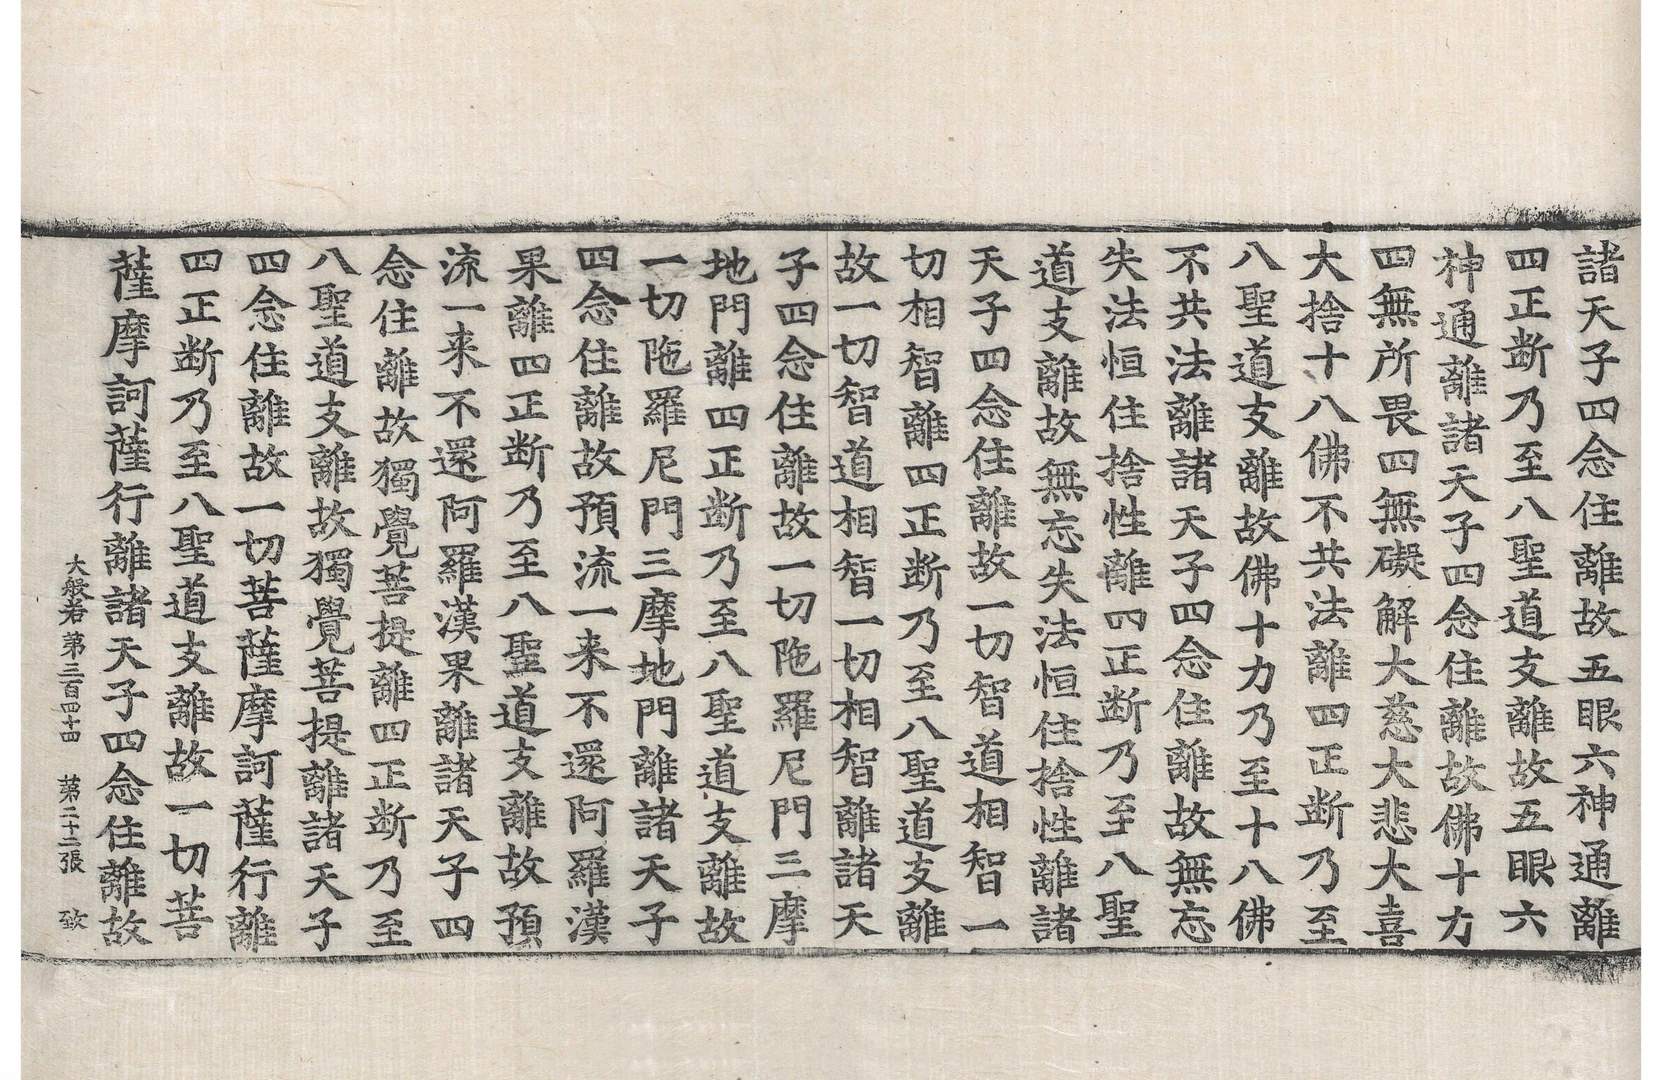 諸天子四念住離故五眼六神通離
四正断乃至八聖道支離故五眼六
神通離諸天子四念住離故佛十力
四無所畏四無礙解大慈大悲大喜
大捨十八佛不共法離四正断乃至
八聖道支離故佛十力乃至十八佛
不共法離諸天子四念住離故無忘
失法恒住捨性離四正断乃至八聖
道支離故無忘失法恒住捨性離諸
天子四念住離故一切智道相智一
切相智離四正断乃至八聖道支離
故一切智道相智一切相智離諸天
子四念住離故一切陁羅尼門三摩
地門離四正断乃至八聖道支離故
一切陁羅尼門三摩地門離諸天子
四念住離故預流一来不還阿羅漢
果離四正断乃至八聖道支離故預
流一来不還阿羅漢果離諸天子四
念住離故獨覺菩提離四正断乃至
八聖道支離故獨覺菩提離諸天子
四念住離故一切菩薩摩訶薩行離
四正断乃至八聖道支離故一切菩
薩摩訶薩行離諸天子四念住離故
大般若第三百四十四 第二十二張 致